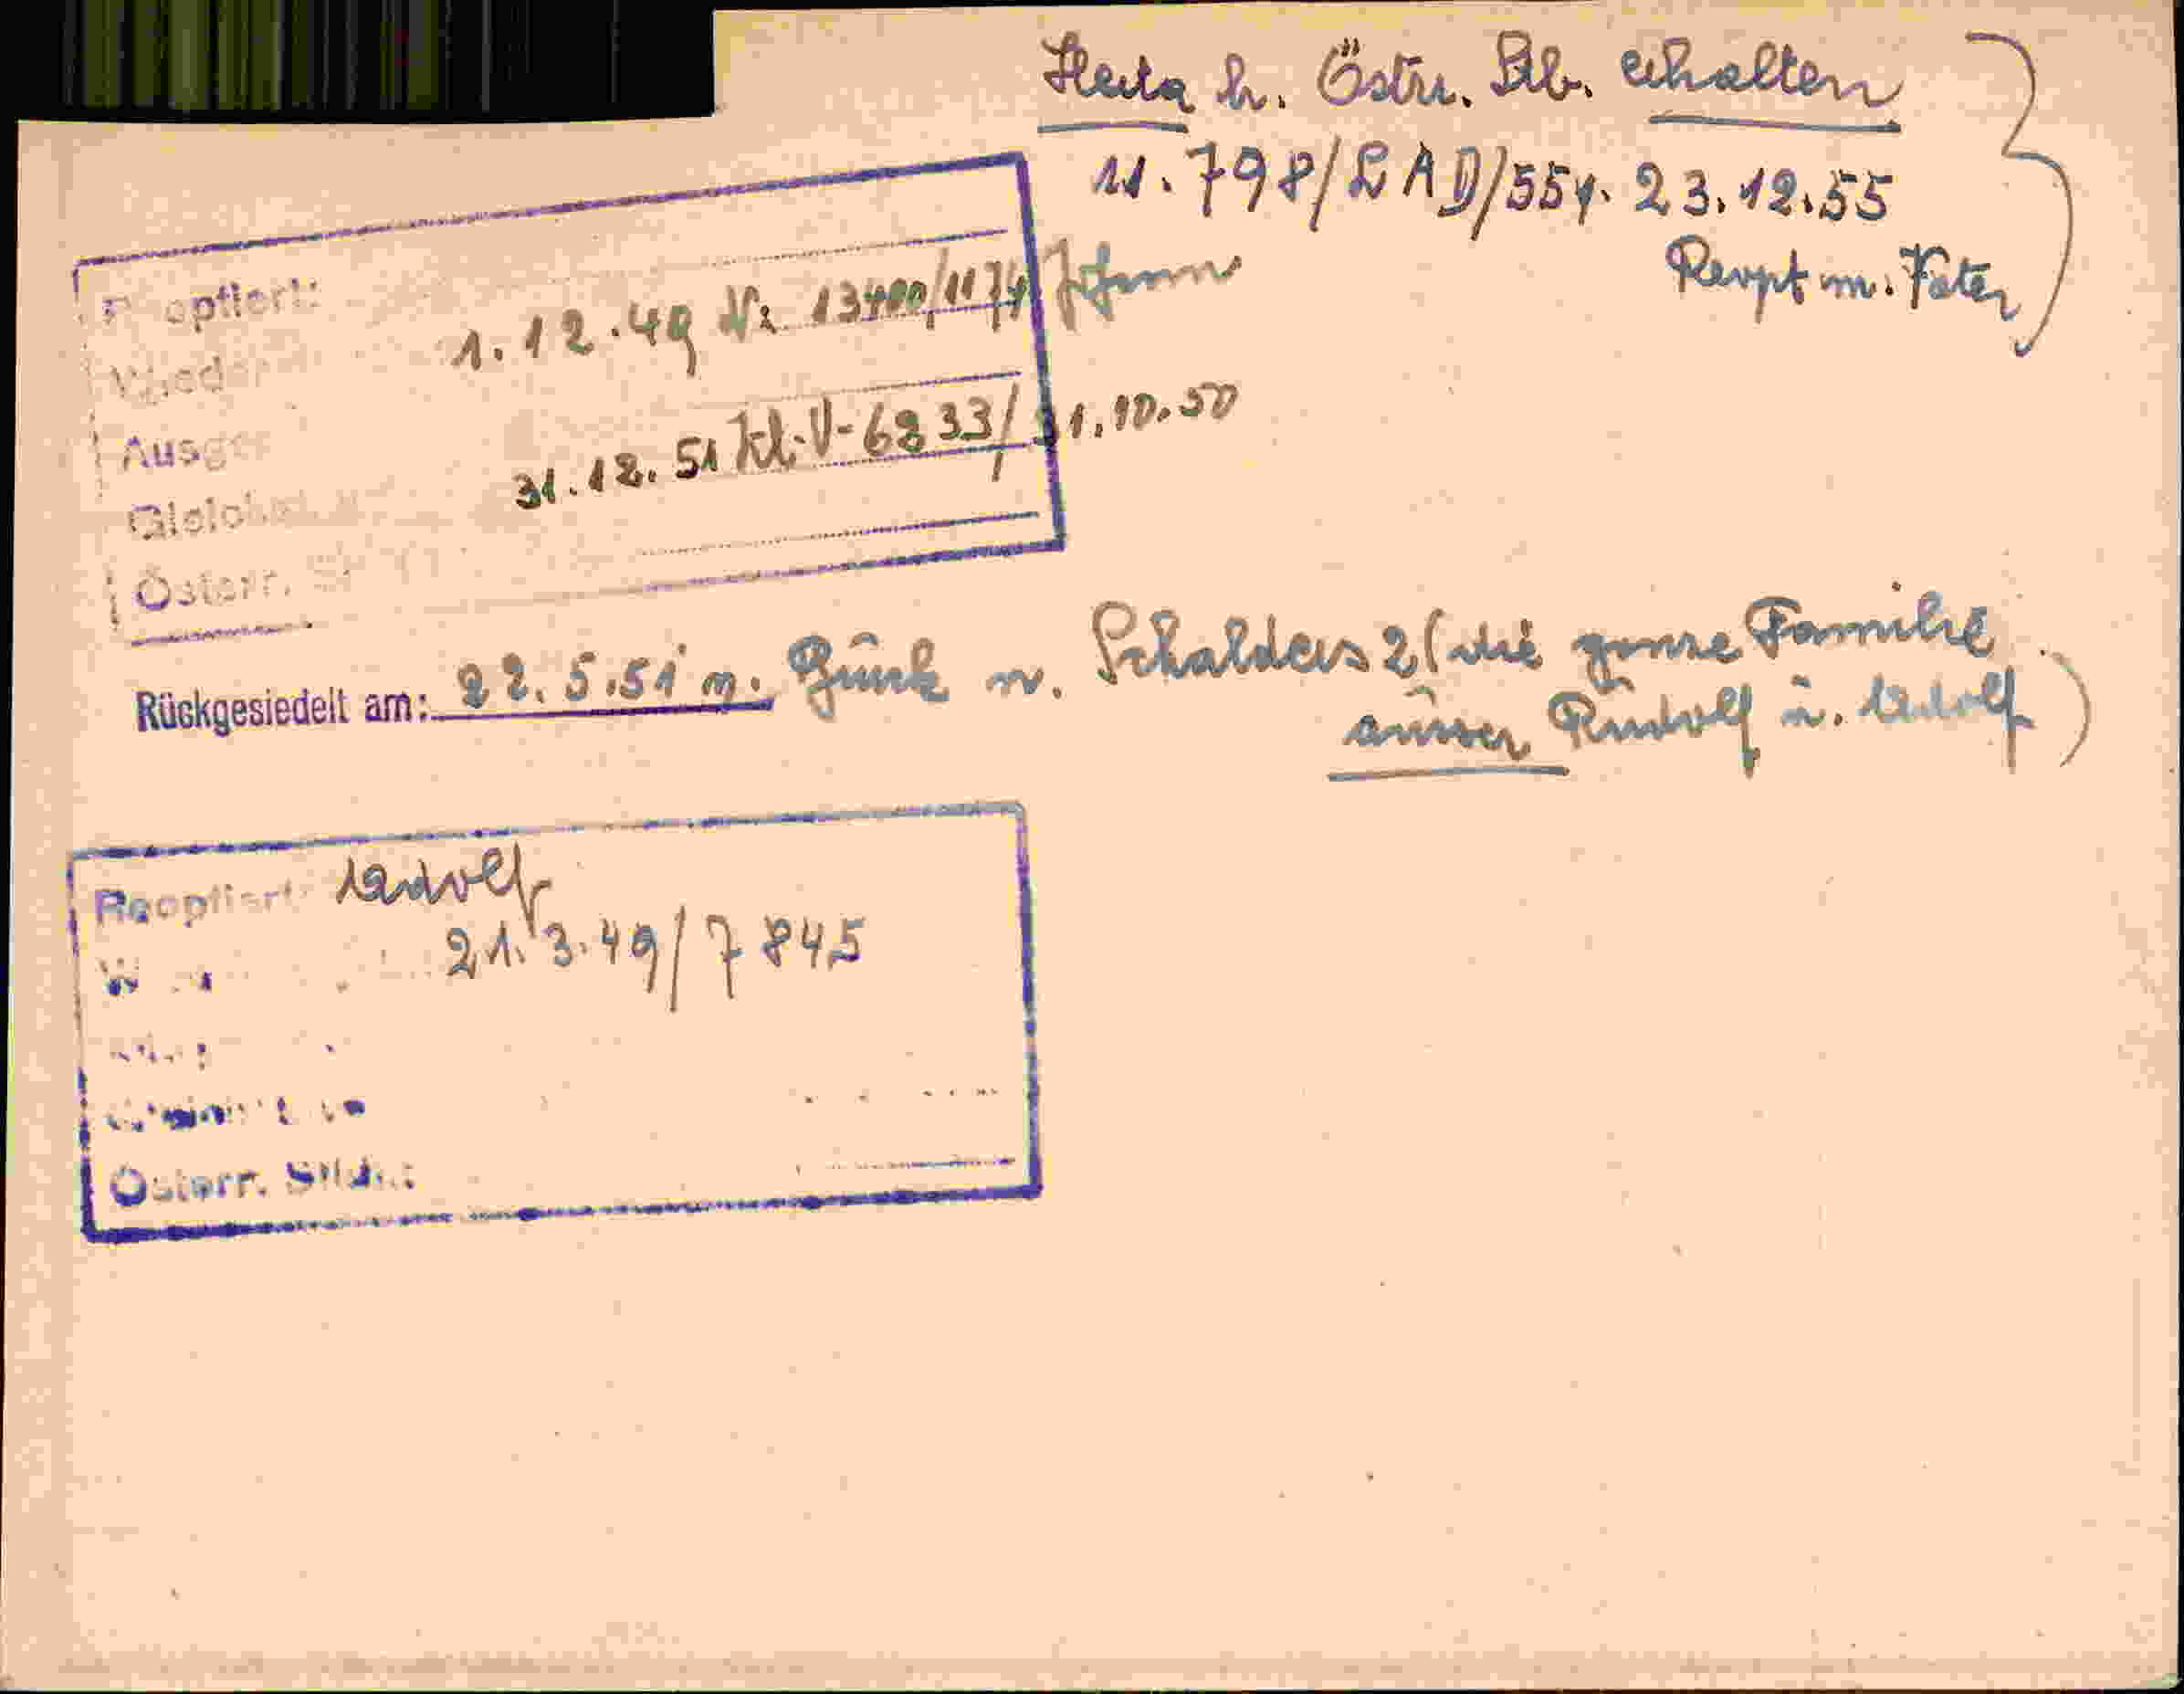 Herta h. Östr. Stb. erhalten
11.798/LAD/55 v. 23.12.55
Reopt m. Vater
Reoptiert:
1.12.49 Nr. 13400/1174 Johann
Wieder
Ausge
31.12.51 Kl. V-6833/31.10.50
Gleich
Österr. St
Rückgesiedelt am: 22.5.51 n. Gurk n. Schalders 2 (die ganze Familie
ausser Rudolf u. Adolf)
Reoptiert: Adolf
21.3.49/7845
Österr. Stb.: